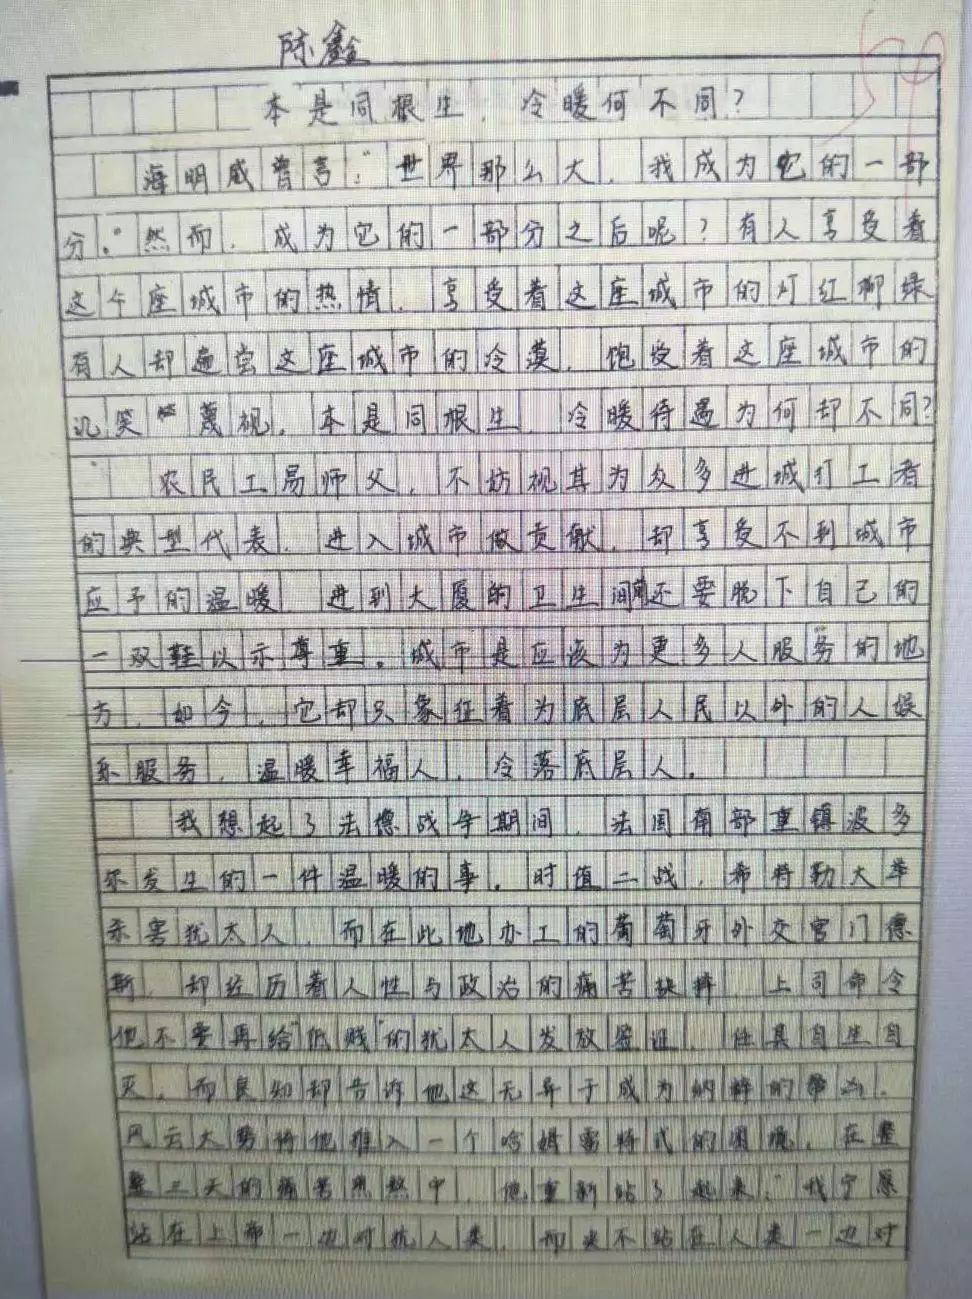 陈鑫
54
本是同根生，冷暖何不同？
海明威曾言："世界那么大，我成为它的一部
分。"然而，成为它的一部分之后呢？有人享受着
这个座城市的热情，享受着这座城市的灯红酒绿
有人却遍尝这座城市的冷漠，饱受着这座城市的
讥笑蔑视，本是同根生，冷暖待遇为何却不同？
农民工易师父，不妨视其为众多进城打工者
的典型代表，进入城市做贡献，却享受不到城市
应予的温暖 进到大厦的卫生间前还要脱下自己的
一双鞋以示尊重。城市是应该为更多人服务的地
方，如今，它却只象征着为底层人民以外的人娱
乐服务，温暖幸福人，冷落底层人。
我想起了法德战争期间，法国南部重镇波多
尔发生的一件温暖的事。时值二战，希特勒大举
杀害犹太人，而在此地办工的葡萄牙外交官门德
斯，却经历着人性与政治的痛苦抉择 上司命令
他不要再给"低贱"的犹太人发放签证，任其自生自
灭，而良知却告诉他这无异于成为纳粹的帮凶。
风云大势将他推入一个哈姆雷特式的困境，在整
整三天的痛苦煎熬中，他重新站了起来："我宁愿
站在上帝一边对抗人类，而决不站在人类一边对